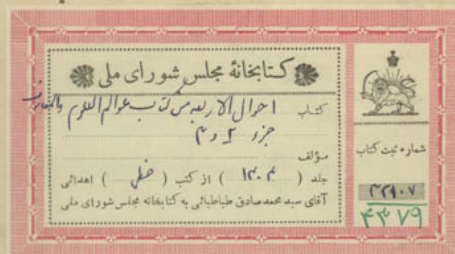 کتابخانهٔ مجلس شورای ملی
کتاب احوال الاربعه من کتاب عوالم العلوم والمعارف
جزء ۲ و ۳
مؤلف
جلد ( ۱۳۰۲ ) از کتب ( خطی ) اهدائی
آقای سید محمدصادق طباطبائی به کتابخانه مجلس شورای ملی
شماره ثبت کتاب
۴۳۷۹